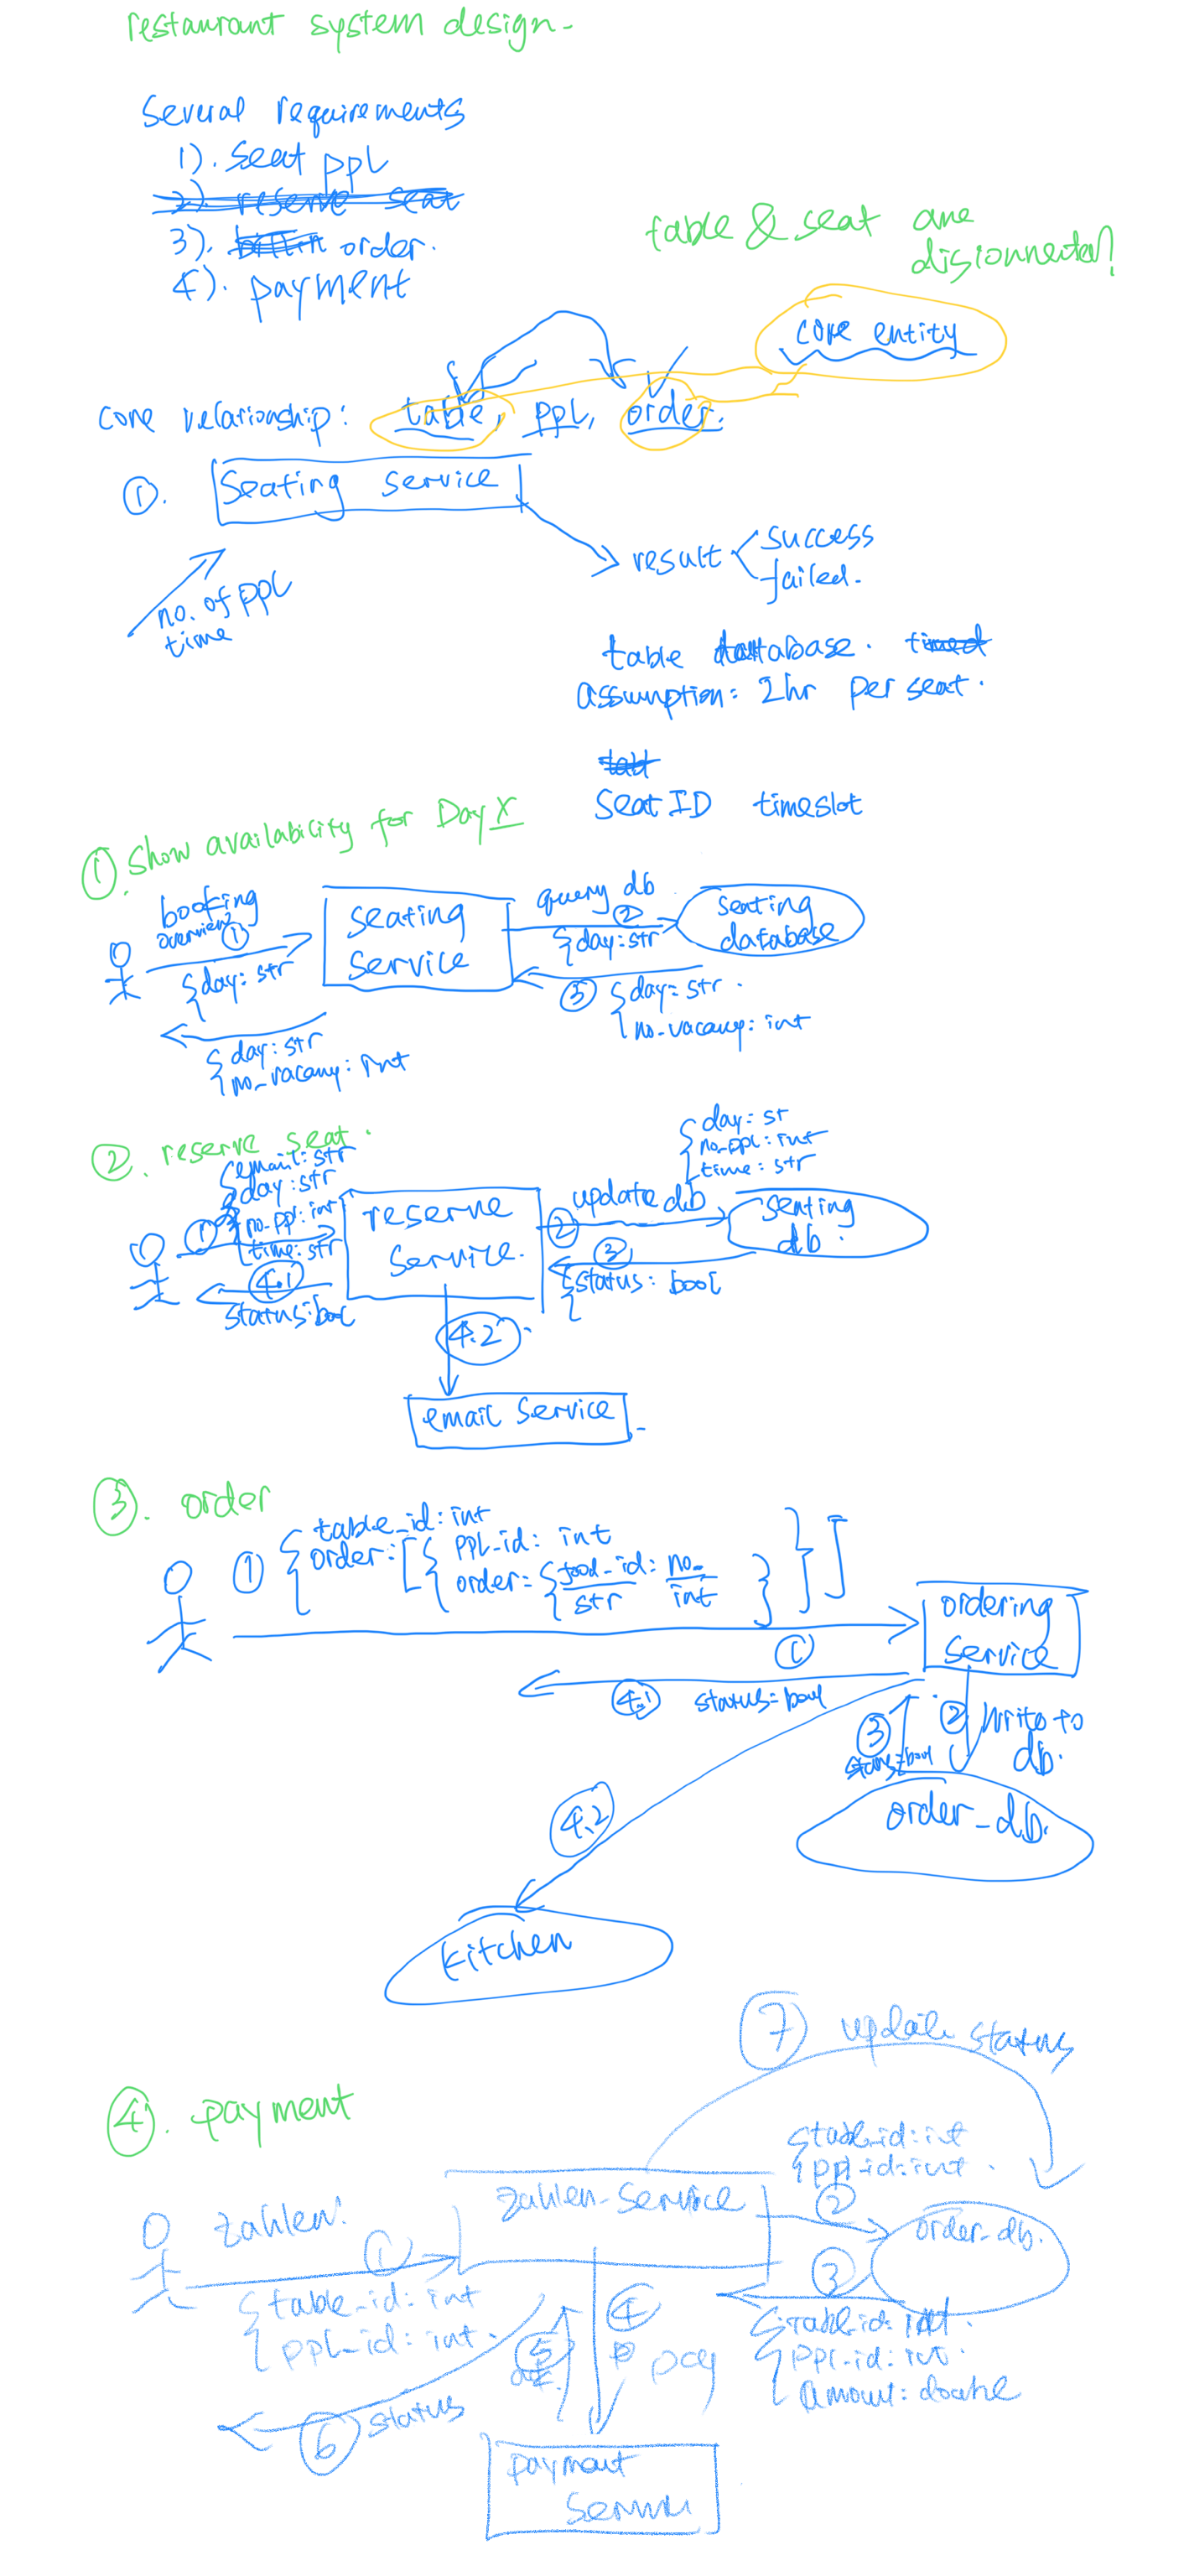 restaurant system design-
Several requirements
1). Seat ppl
2). reserve seat
3). order.
4). payment
table & seat are
disconnected!
core entity
core relationship: table, ppl, order.
①. Seating service
no. of ppl
time
result
success
failed.
table database. timed
assumption: 2hr per seat.
Seat ID timeslot
①. Show availability for Day X
booking
overview
①
{day: str
seating
service
query db
②
{day: str
seating
database
③ {day: str.
no_vacancy: int
{day: str
no_vacany: int
②. reserve seat.
{email: str
day: str
no_ppl: int
time: str
①
4.1
status: bool
reserve
service.
{day: str
no_ppl: int
time: str
update db
②
③
{status: bool
seating
db.
4.2
email service
③. order
① {table_id: int
order: [{ppl_id: int
order: {food_id: no_
str int
} } ]
①
ordering
service
4.1 status: bool
③
status: bool
② write to
db.
order_db.
4.2
kitchen
⑦ update status
④. payment
zahlen!
①
{table_id: int
ppl_id: int.
zahlen-service
{table_id: int
ppl_id: int.
②
order_db.
③
{table_id: int.
ppl_id: int.
amount: double
④
pay
⑤
⑥ status
payment
service